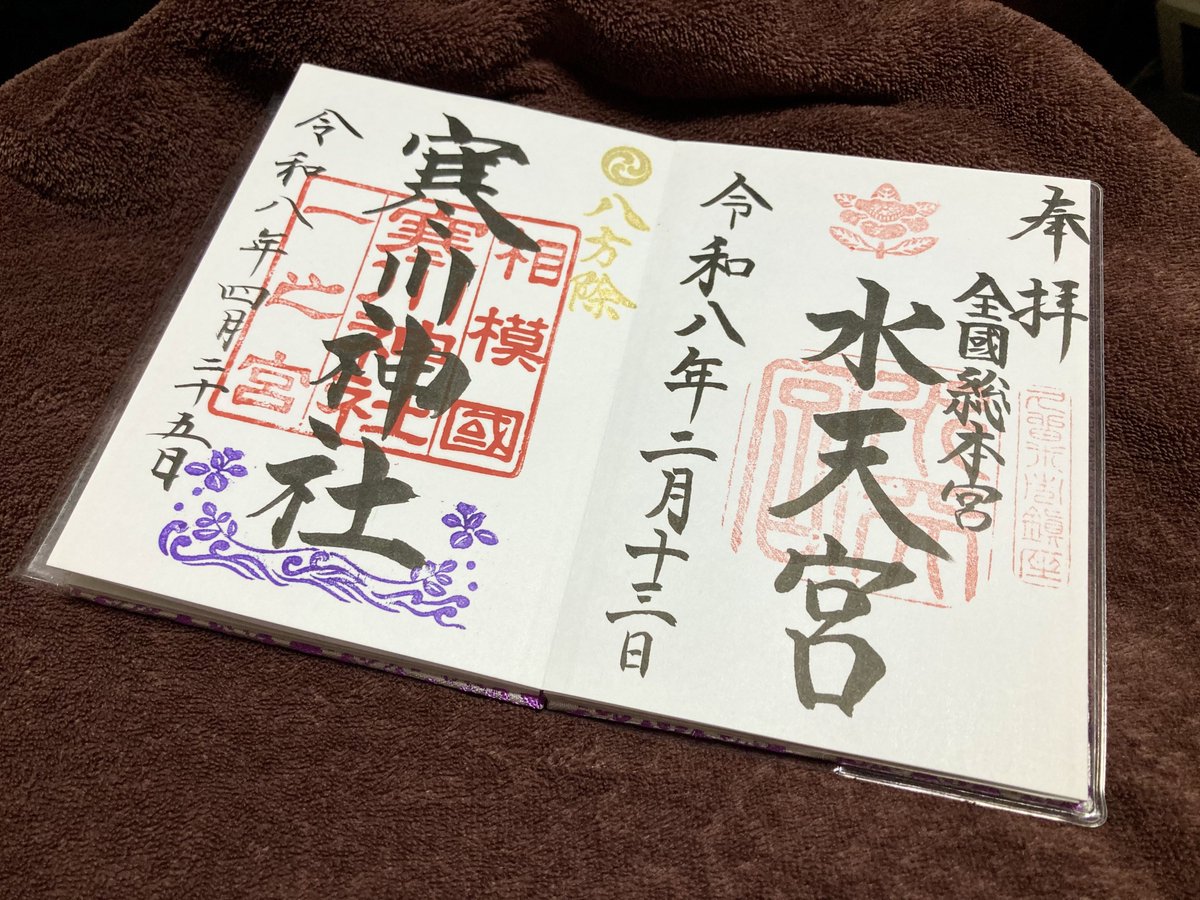 奉拝
全國総本宮
水天宮
令和八年二月十三日
八方除
相模國
寒川神社
一之宮
寒川神社
令和八年四月二十五日